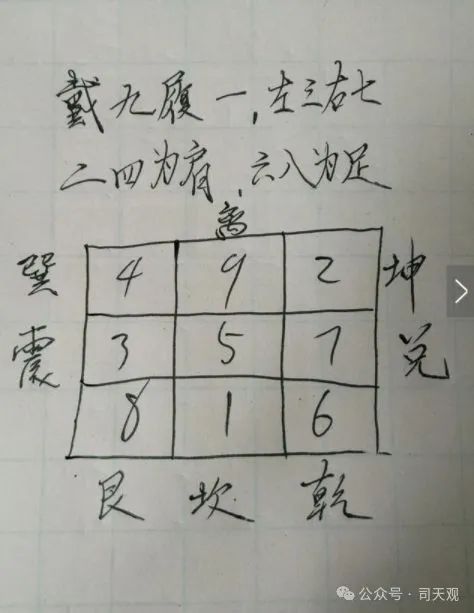 戴九履一,左三右七
二四为肩,六八为足
离
巽 4 9 2 坤
震 3 5 7 兑
8 1 6
艮 坎 乾
公众号·司天观